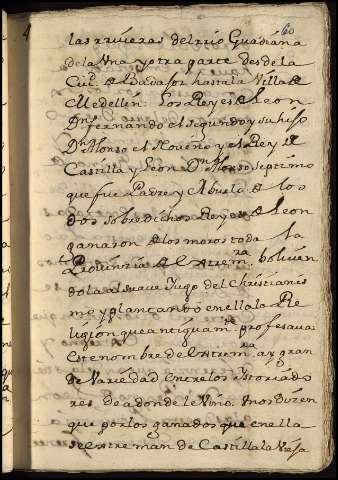 4 60
las rrivieras del rrio Guadiana
de la Una y otra parte desde la
Ciu.d de Badajos hasta la Villa de
Medellin. Los Reyes de Leon
Dn. fernando el segundo y su hijo
Dn. Alonso el Noveno y el Rey de
Castilla y Leon Dn. Alonso septimo
que fue Padre y Abuelo de los
dos sobre dichos Reyes de Leon
ganaron de los moros toda la
Provinzia de Extrem.ra bolvien
dola al suave Jugo del Christianis
mo y plantando en ella la Re
ligion que antiguam.te profesava
este nombre de Extrem.ra ay gran
de Variedad entre los Istoriado
res de adonde le vino. Unos Dizen
que por los ganados que en ella
se extreman de Castilla la Vieja